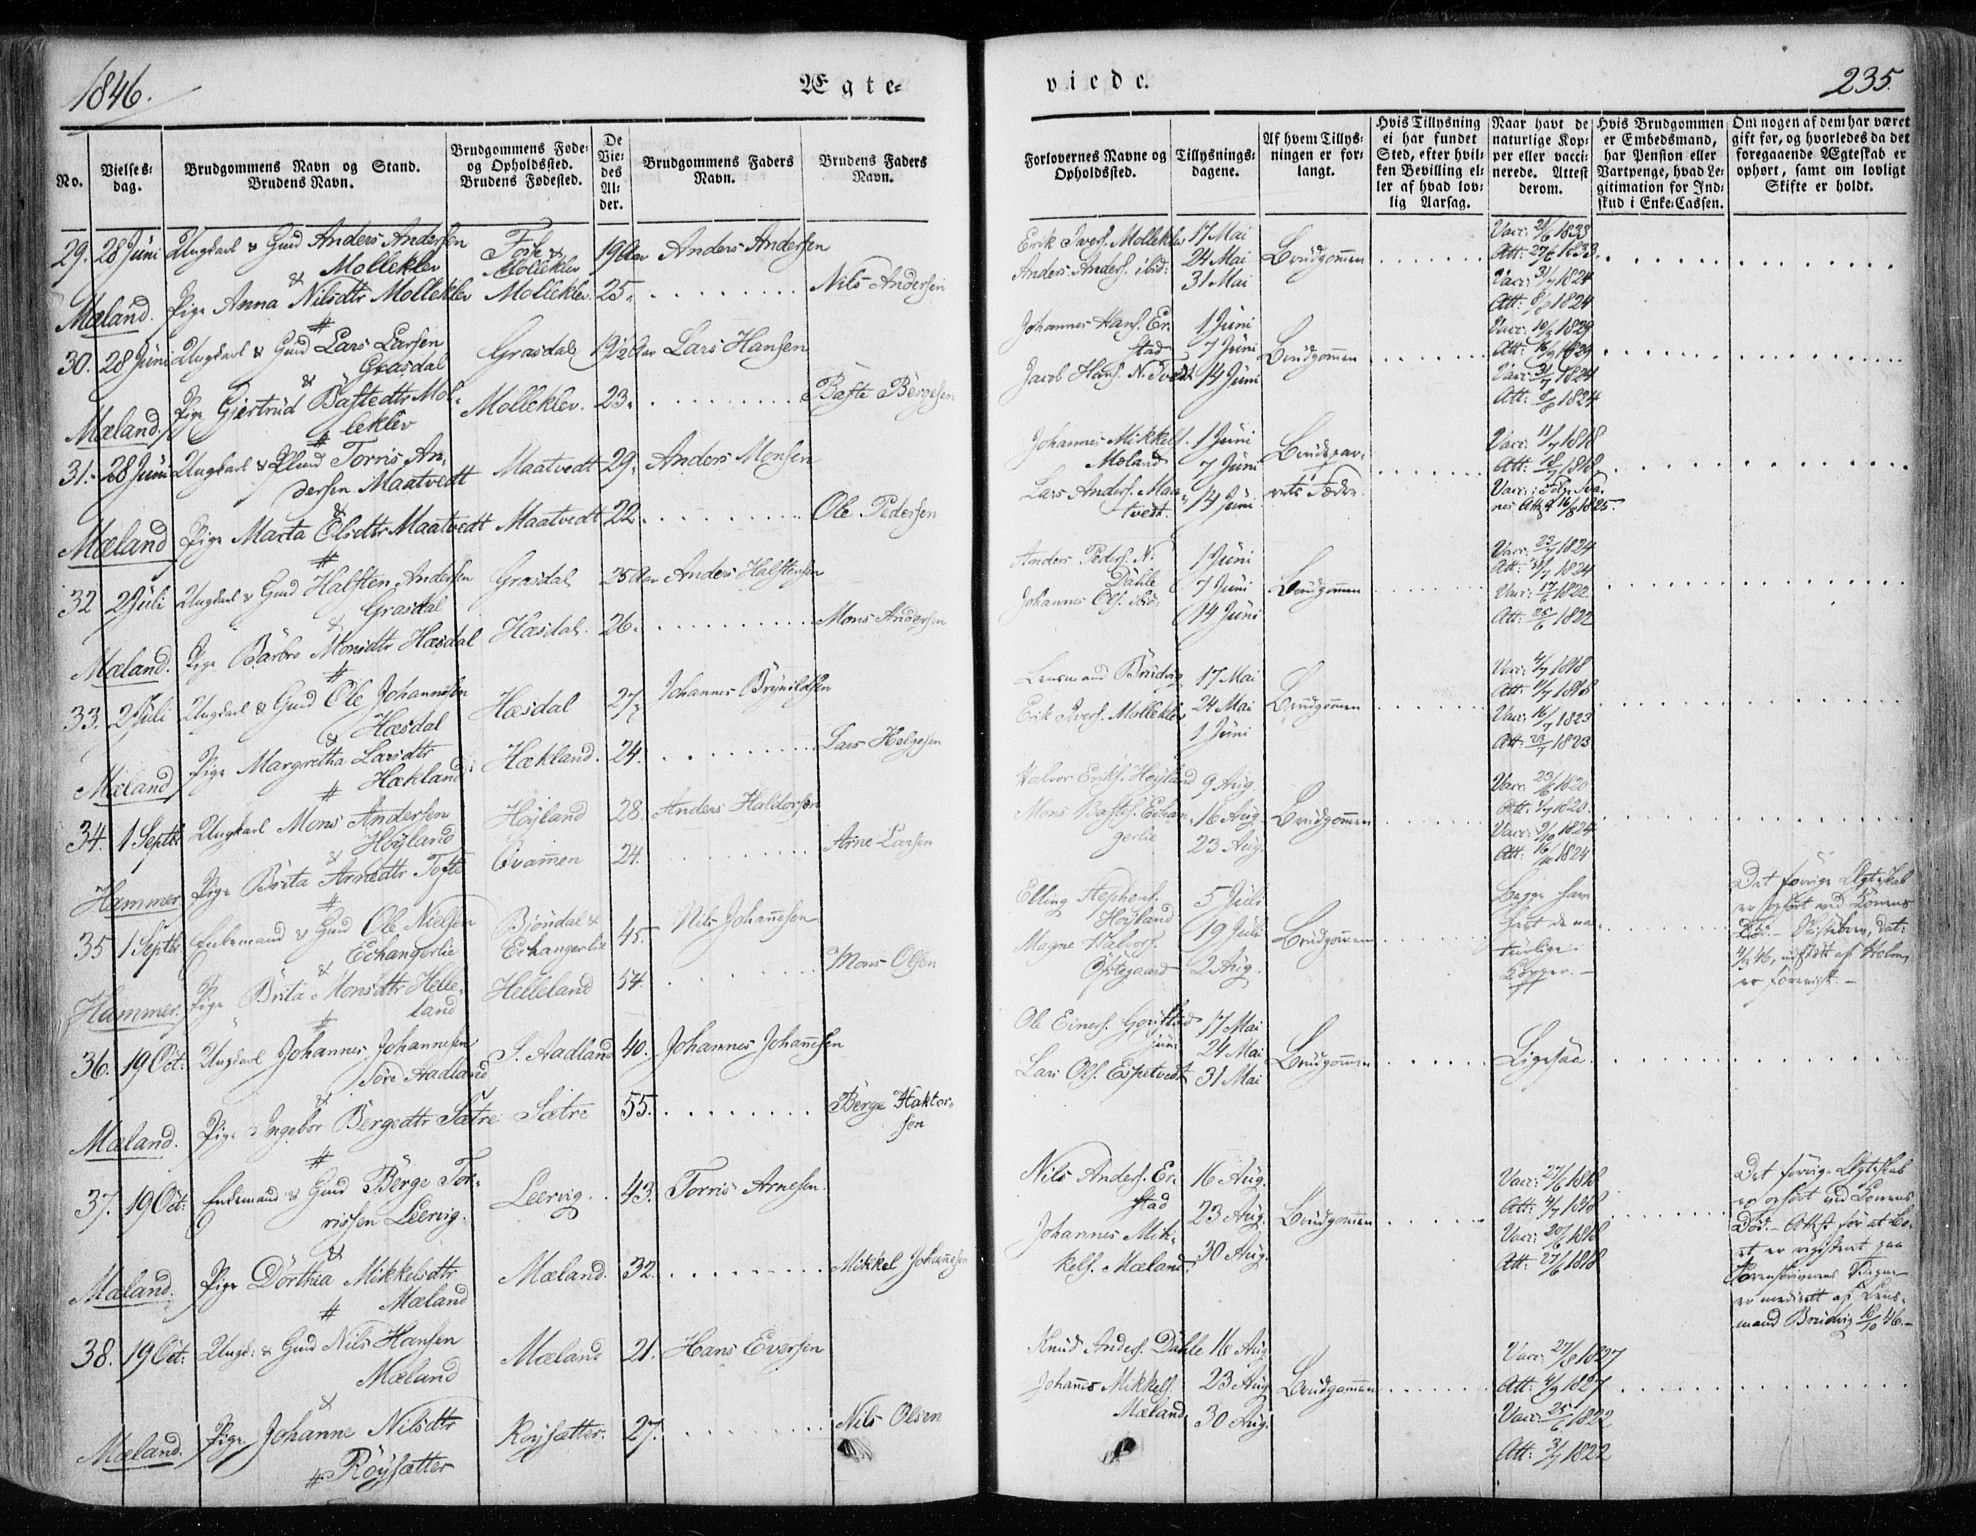 1846.
Ægte=
viede.
235.
No.
Vielses=
dag.
Brudgommens Navn og Stand.
Brudens Navn.
Brudgommens Føde=
og Opholdssted.
Brudens Fødested.
De
Vie=
des
Al=
der.
Brudgommens Faders
Navn.
Brudens Faders
Navn.
Forlovernes Navne og
Opholdssted.
Tillysnings=
dagene.
Af hvem Tillys=
ningen er for=
langt.
Hvis Tillysning
ei har fundet
Sted, efter hvil=
ken Bevilling el=
ler af hvad lov=
lig Aarsag.
Naar havt de
naturlige Kop=
per eller vacci=
nerede. Attest
derom.
Hvis Brudgommen
er Embedsmand,
har Pension eller
Vartpenge, hvad Le=
gitimation for Ind=
skud i Enke=Cassen.
Om nogen af dem har været
gift før, og hvorledes da det
foregaaende Ægteskab er
ophørt, samt om lovligt
Skifte er holdt.
29. 28 Juni Ungkarl & Gmd Anders Andersen
Molleklev
&
Mæland. Pige Anna Nilsdtr Molleklev
Molleklev
Molleklev.
19 Aar
25.
Anders Andersen
Nils Andersen
Erik Ivers. Molleklev
Anders Anders. ibid:
17 Mai
24 Mai
31 Mai
Brudgommen
Att: 27/6 1833.
Vacc: 31/7 1824
Att: 8/8 1824
30. 28 Juni Ungkarl & Gmd Lars Larsen
Græsdal
&
Mæland. Pige Gjertrud Bastedtr Mol-
leklev
Græsdal
Molleklev.
19½ Aar
23.
Lars Hansen
Baste Børgesen
Johannes Hans. Er-
stad
Jacob Hans. N. Tvedt
1 Juni
7 Juni
14 Juni
Brudgommen
Vacc: 31/7 1824
Att: 8/8 1824
31. 28 Juni Ungkarl & Torris An-
dersen Maatvedt
&
Mæland Pige Marta Olsdtr Maatvedt
Maatvedt
Maatvedt
29.
22.
Anders Monsen
Ole Pedersen
Johannes Mikkels.
Mæland
Lars Anders. Maa-
tvedt.
1 Juni
7 Juni
14 Juni
Brudepar-
rets Fædre.
Vacc: 11/7 1818
Att: 18/7 1818
32 2 Juli Ungkarl & Gmd Halsten Andersen
Græsdal
&
Mæland. Pige Barbro Monsdtr Hæsdal
Græsdal
Hæsdal.
25 Aar
26.
Anders Halstensen
Mons Andersen
Anders Peders. N.
Dahle
Johannes Ols. ibid:
1 Juni
7 Juni
14 Juni
Brudgommen
Vacc: 17/6 1822
Att: 25/6 1822
33. 2 Juli Ungkarl & Gmd Ole Johannesen
Hæsdal
&
Mæland Pige Margretha Larsdtr
Hækland
Hæsdal
Hækland.
27½
24.
Johannes Brynildsen
Lars Helgesen
Lensmand Brudvig
Erik Ivers. Molleklev
17 Mai
24 Mai
1 Juni
Brudgommen
Vacc: 4/7 1818
Att: 11/7 1818
Vacc: 16/7 1823
Att: 23/7 1823
34. 1 Septbr Ungkarl Mons Andersen
Høyland
&
Hammer Pige Brita Arnedtr Tofte
Høyland
Qvammen
28.
24.
Anders Haldorsen
Arne Larsen
Halvor Eriks. Høyland
Mons Bastes. Echan-
gerlie
9 Aug.
16 Aug.
23 Aug.
Brudgommen
Vacc: 23/6 1820
Att: 1/7 1820
Vacc: 9/10 1824
Att: 16/10 1824
35 1 Septbr Enkemand & Gmd Ole Nielsen
Echangerlie
&
Hammer. Pige Brita Monsdtr Helle-
land
Bjøndal &
Echangerlie
Helleland
45.
54.
Nils Johannesen
Mons Olsen
Elling Stephens.
Høyland
Magne Halvors.
Østegaard
5 Juli
19 Juli
2 Aug.
Brudgommen
Begge have
havt de na-
turlige
Kopper.
Det forrige Ægteskab
er ophørt ved Konens
Død. Skiftebrev, dat:
er forevist.
36. 19 Oct: Ungkarl Johannes Johannesen
Søre Aadland
&
Mæland. Pige Ingebor Bergedtr Sætre
S. Aadland
Sætre
40.
55.
Johannes Johannesen
Berge Haktor-
sen
Lars Ols. Espetvedt
17 Mai
24 Mai
31 Mai
Brudgommen
Ligesaa.
37. 19 Oct: Enkemand & Gmd Børge Tor-
rissen Leervig.
&
Mæland. Pige Dorthea Mikkelsdtr
Mæland
Leervig.
Mæland.
43.
32.
Torris Arnesen.
Mikkel Johannesen
Nils Anders. Er-
stad
Johannes Mik-
kels. Mæland.
16 Aug.
23 Aug.
30 Aug.
Brudgommen
Vacc: 27/6 1818
Att: 4/7 1818
Vacc: 20/6 1818
Att: 27/6 1818
Det forrige Ægteskab
er ophørt ved Konens
Død. Attest for at Bo-
et er registreret paa
Sorenskriverens Vegne
er meddeelt af Lens-
mand Brudvig 10/10 46.
38. 19 Oct: Ungk: & Gmd Nils Hansen
Mæland
&
Mæland. Pige Johanne Nilsdtr
Røysætter
Mæland
Røysætter.
21.
27.
Hans Eversen
Nils Olsen
Knud Anders. Dahle
Johannes Mikkels.
Mæland
16 Aug.
23 Aug.
30 Aug.
Brudgommen
Vacc: 27/8 1827
Att: 4/9 1827
Vacc: 25/6 1822
Att: 3/7 1822